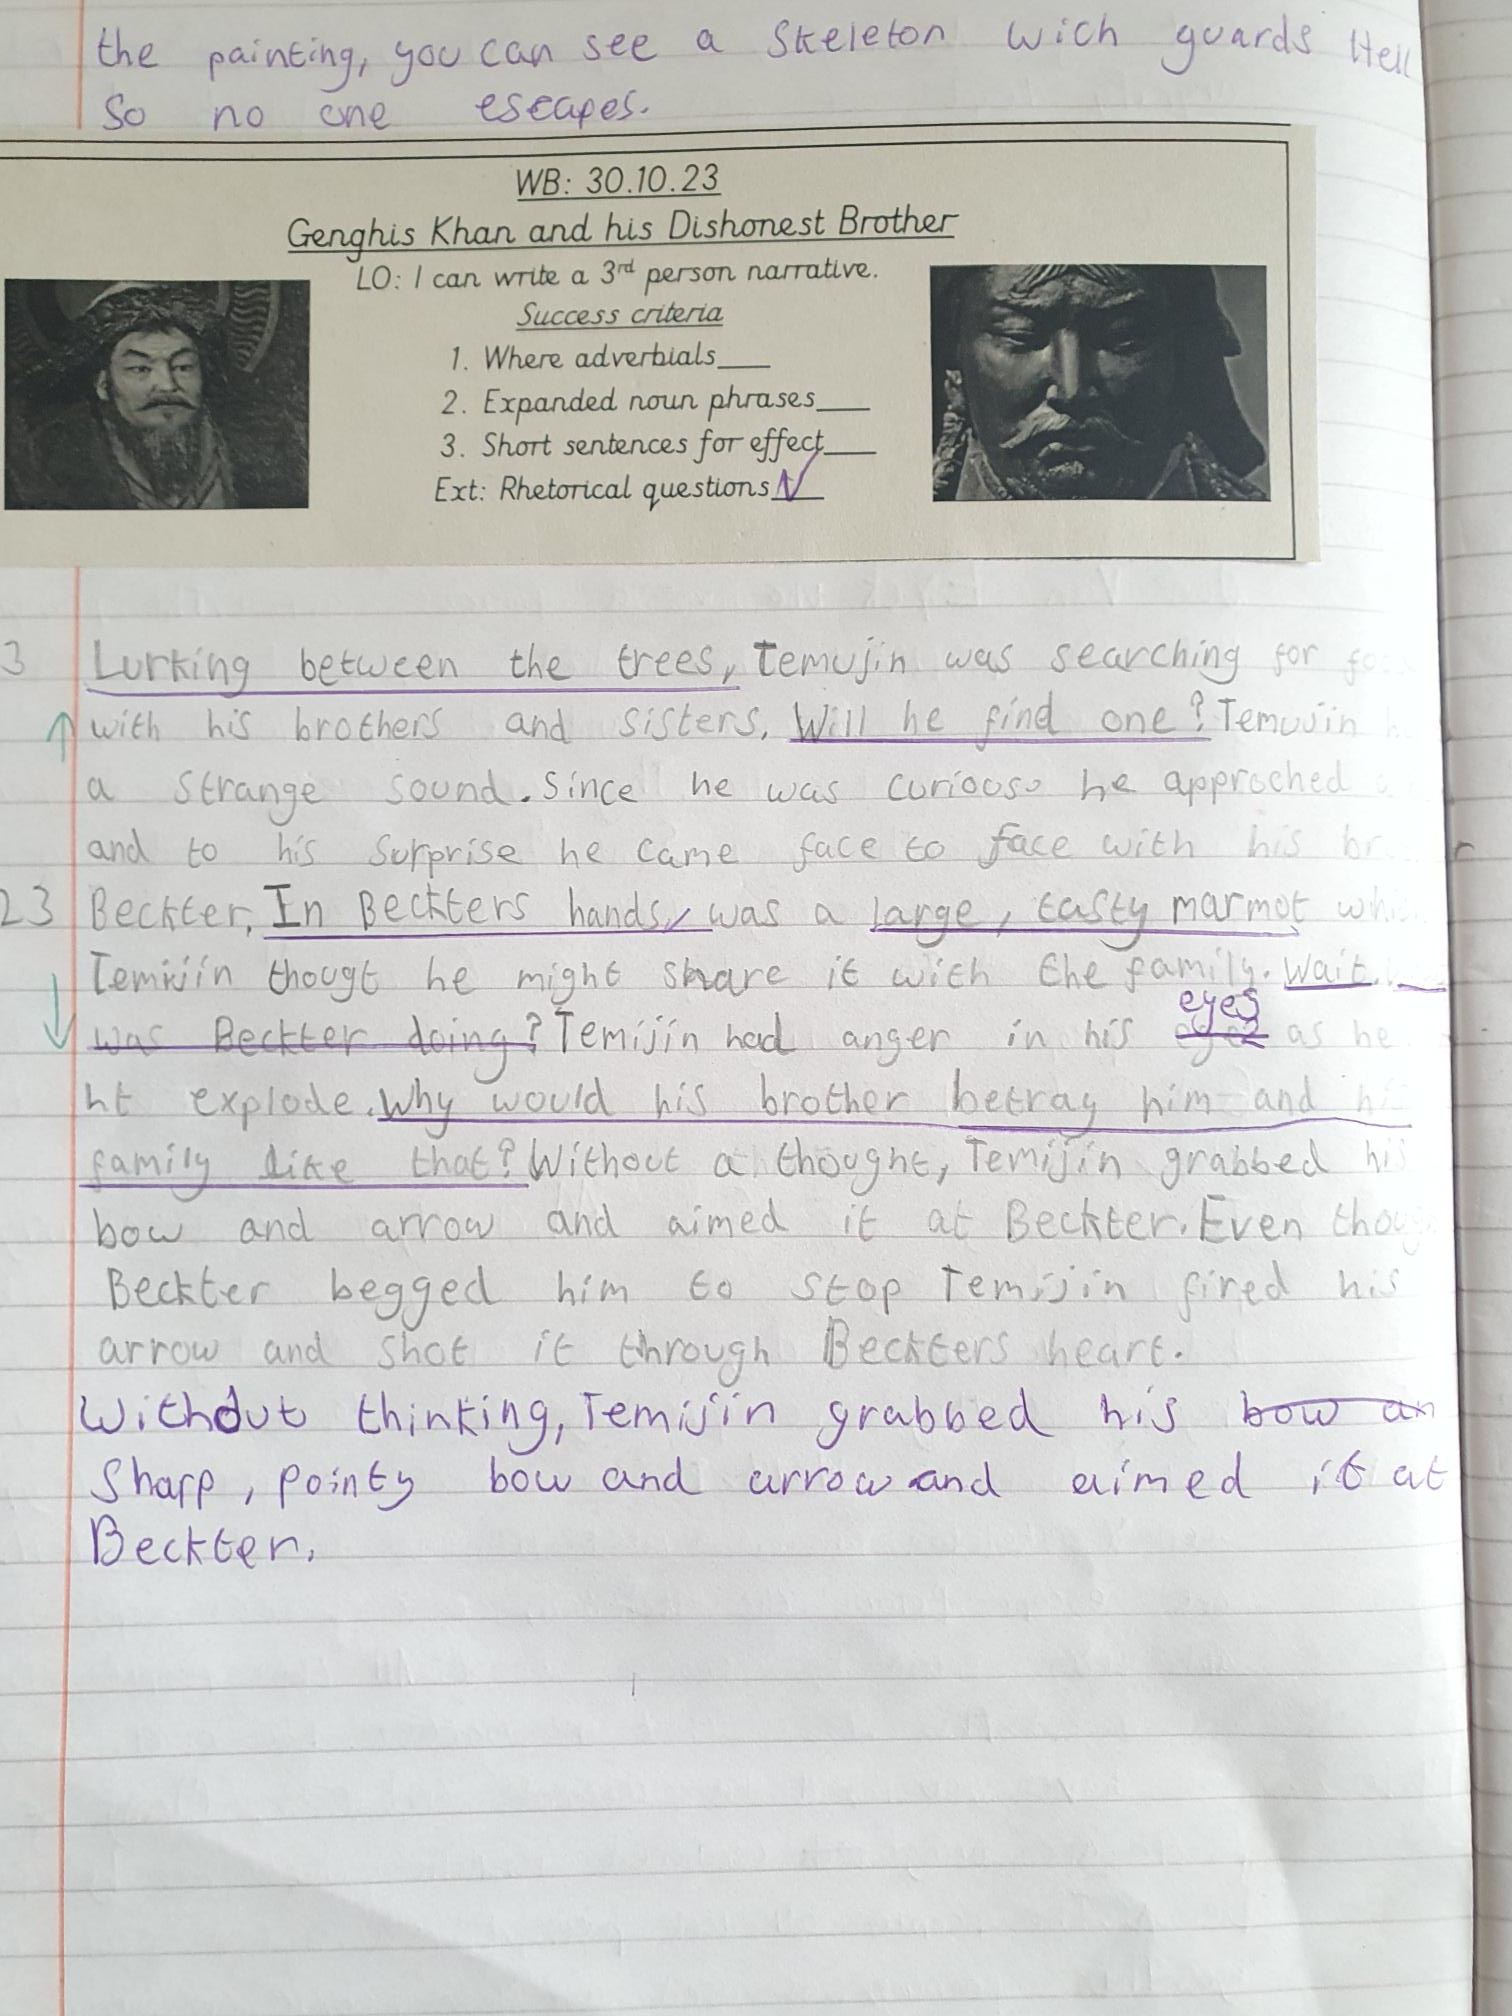 the painting, you can see a skeleton wich guards Hell
so no one escapes.
WB: 30.10.23
Genghis Khan and his Dishonest Brother
LO: I can write a 3rd person narrative.
Success criteria
1. Where adverbials___
2. Expanded noun phrases___
3. Short sentences for effect___
Ext: Rhetorical questions___
3 Lurking between the trees, Temujin was searching for
with his brothers and sisters. Will he find one? Temujin
a strange sound. Since he was curioos he approched
and to his surprise he came face to face with his
23 Beckter. In Beckters hands, was a large, tasty marmot
Temijin thougt he might share it with the family. Wait.
was Beckter doing? Temijin had anger in his eyes as he
ht explode. Why would his brother betray him and
family like that? Without a thought, Temijin grabbed his
bow and arrow and aimed it at Beckter. Even
Beckter begged him to stop Temijin fired his
arrow and shot it through Beckters heart.
Without thinking, Temijin grabbed his bow an
sharp, pointy bow and arrow and aimed it at
Beckter.